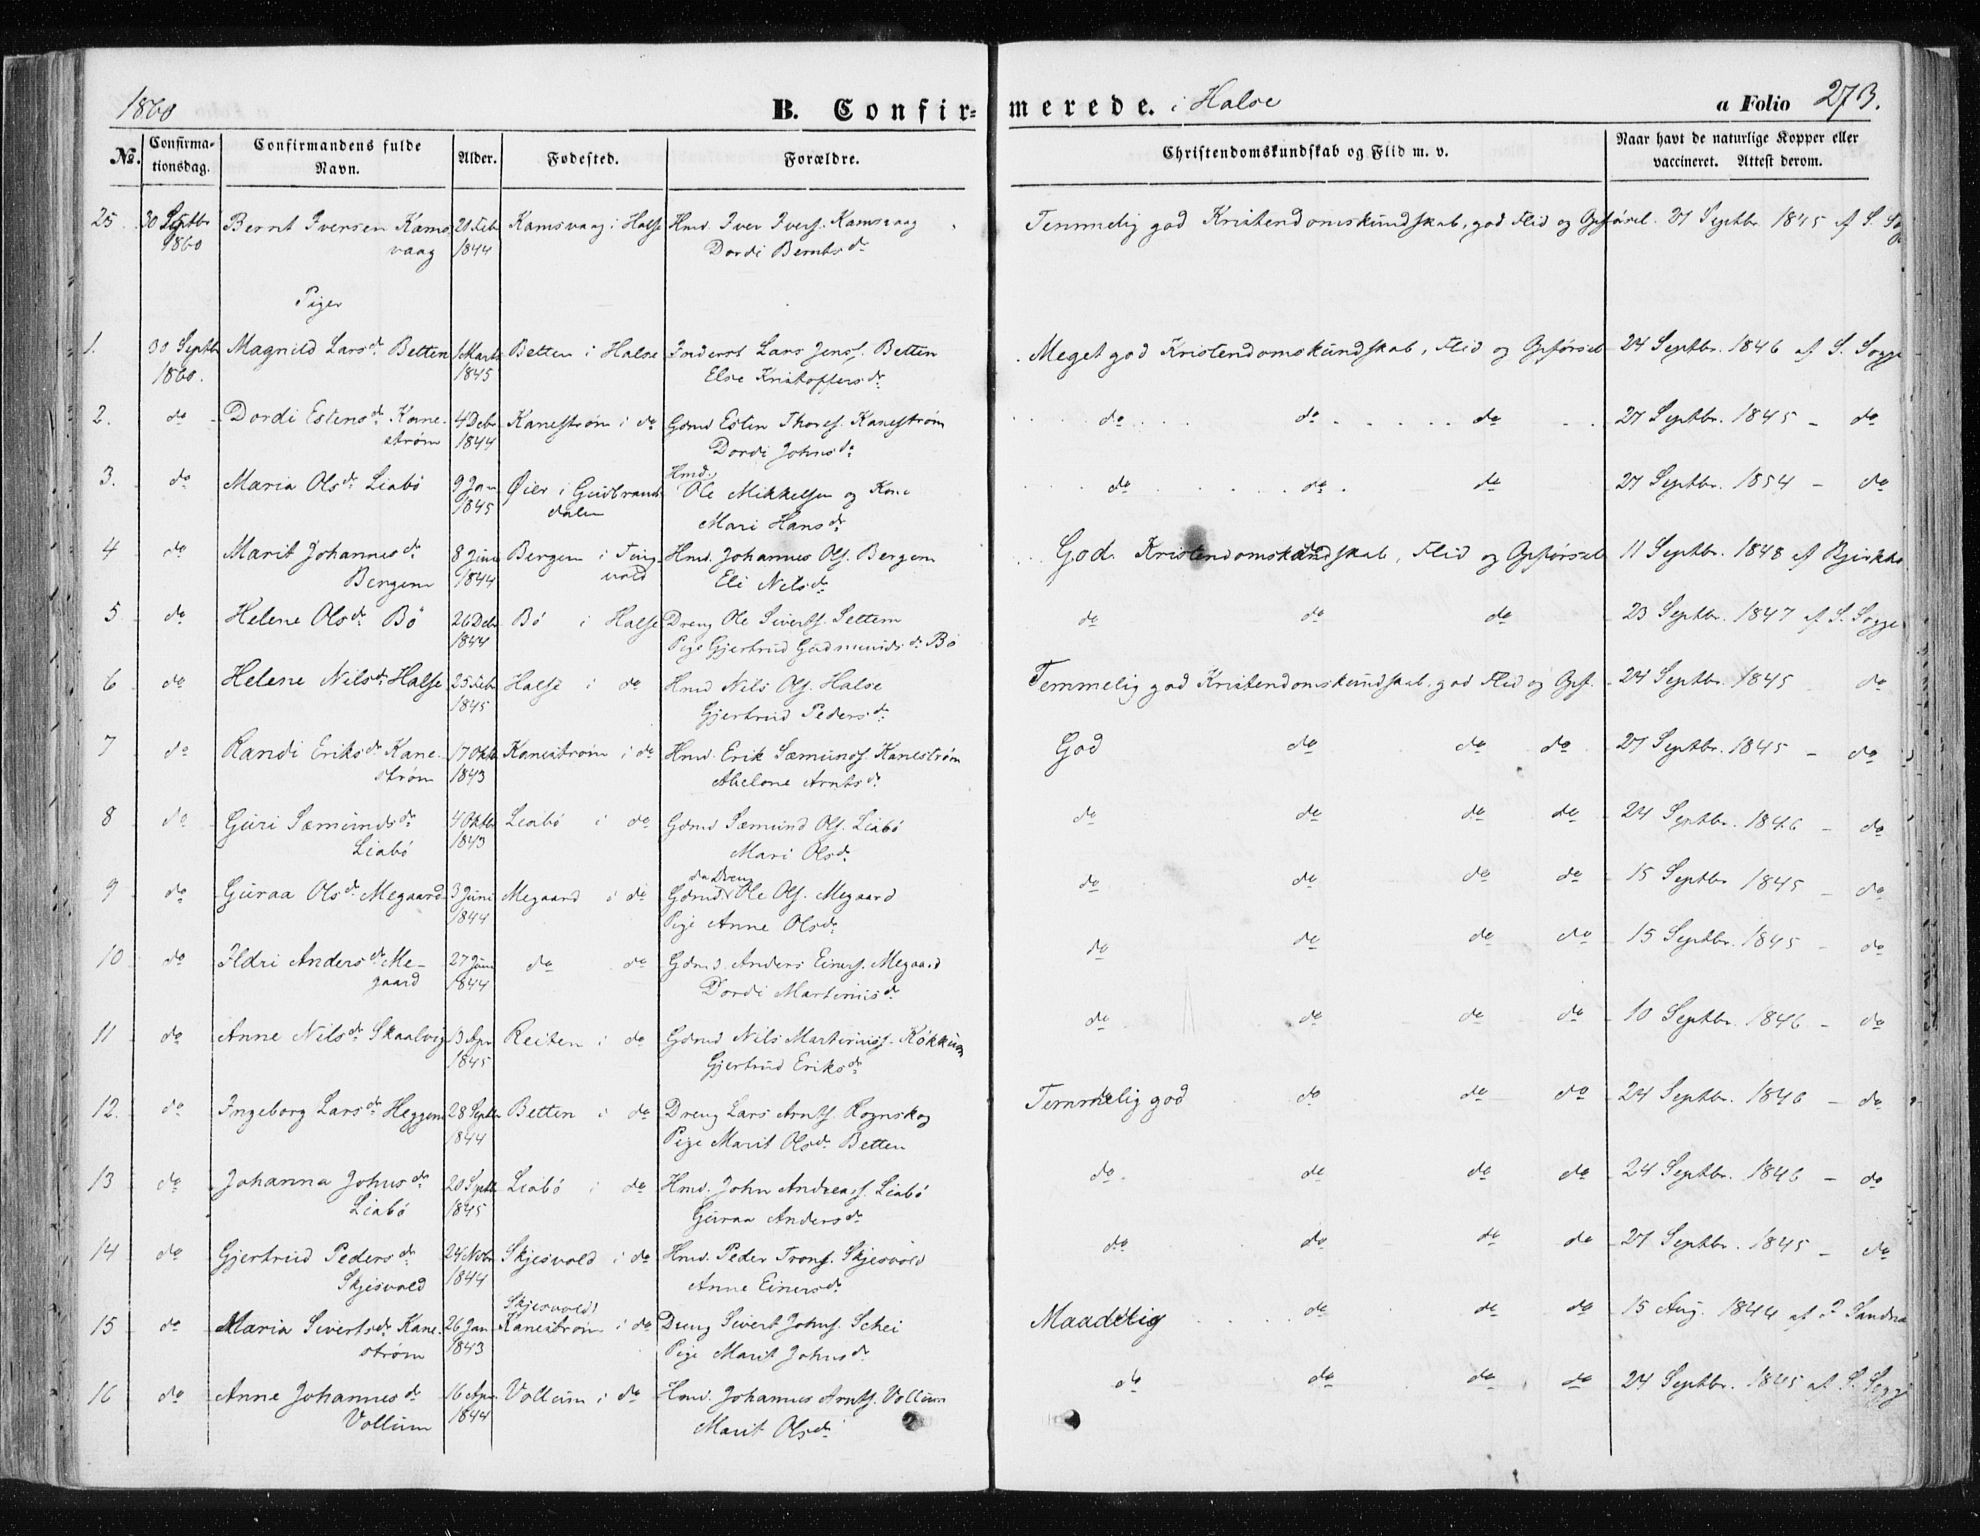 1860 B. Confirmerede. i Halse a Folio 273.
No. Confirmationsdag. Confirmandens fulde Navn. Alder. Fødested. Forældre. Christendomskundskab og Flid m. v. Naar havt de naturlige Kopper eller vaccineret. Attest derom.
25 30 Septbr Bernt Iversen Kams 21 Feb Kamsvaag i Halse Hmd. Iver Ivers. Kamsvaag Temmelig god Kristendomskundskab, god Flid og Opførsel. 27 Septbr. 1845 af S.
1860 vaag 1844 Dordi Bernts d.
Piger
1. 30 Septbr Magnild Lars d. Betten 1 Marts Betten i Halse Inderst Lars Jens. Betten Meget god Kristendomskundskab, Flid og Opførsel 24 Septbr. 1846 af S. Sogge
1860. 1845 Else Kristoffers d.
2. do Dordi Estens d. Kane- 4 Debr Kanestrøm i do Gdmd Esten Thores. Kanestrøm do do do 27 Septbr. 1845 - do
strøm 1844 Dordi Johns d.
3. do Maria Ols d. Liabø 9 Jan Øier i Gudbrands Hmd. Ole Mikkelsen og Kone do do do 27 Septbr. 1854 - do
1845 dalen Mari Hans d.
4 do Marit Johannes d. 8 Juni Bergem i Ting Hmd. Johannes Ols. Bergem God Kristendomskundskab, Flid og Opførsel 11 Septbr. 1848 af
Bergem 1844 vold Eli Nils d.
5 do Helene Ols d. Bø 26 Debr Bø i Halse Dreng Ole Siverts. Settem do do do 23 Septbr. 1847 af S. Sogge
1844 Pige Gjertrud Gudmunds d. Bø
6 do Helene Nils d. Halse 25 Feb Halse i do Hmd Nils Ols. Halse Temmelig god Kristendomskundskab, god Flid og Opf. 24 Septbr. 1845 do
1845 Gjertrud Peders d.
7 do Randi Eriks d. Kane- 17 Oktb Kanestrøm i do Hmd. Erik Sæmunds. Kanestrøm God do do do 27 Septbr. 1845 - do
strøm 1843 Abelone Arnts d.
8 do Guri Sæmunds d. 4 Oktb Liabø i do Gdmd Sæmund Ols. Liabø do do do do 24 Septbr. 1846 - do
Liabø 1843 Mari Ols d.
9 do Guraa Ols d. Megaard 3 Juni Megaard i do Gdmd da Dreng Ole Ols. Megaard do do do do 15 Septbr 1845 - do
1844 Pige Anne Ols d.
10 do Ildri Anders d. Me- 27 Juni do do Gdmd. Anders Einers. Megaard do do do do 15 Septbr. 1845 - do
gaard 1844 Dordi Martinus d.
11 do Anne Nils d. Skaalvig 13 Apr Reiten i do Gdmd Nils Martinuss. Køkkum do do do do 10 Septbr. 1846 - do
1845 Gjertrud Eriks d.
12. do Ingeborg Lars d. Heggem 28 Septbr Betten i do Dreng Lars Arnts. Rognskog Temmelig god do do do 24 Septbr. 1846 - do
1844 Pige Marit Ols d. Betten
13 do Johanna Johns d. 20 Septb Liabø i do Hmd. John Andreas. Liabø do. do do do 24 Septbr. 1846 - do
Liabø 1845 Guraa Anders d.
14 do Gjertrud Peders d. 24 Novbr Skjesvold i do Hmd. Peder Trons. Skjesvold do do do do 27 Septbr. 1845 - do
Skjesvold 1844 Anne Einers d.
Skjesvold!
15 do Maria Siverts d. Kane- 26 Jan Kanestrøm i do Dreng Sivert Johns. Schei Maadelig do do do 15 Aug. 1844 af ? Sandn
strøm 1843 Pige Marit Johns d.
16 do Anne Johannes d. 16 Apr Vollum i do Hmd. Johannes Arnts. Vollum do do do do 24 Septbr. 1845 af S. Sogge
Vollum 1844 Marit Ols d.